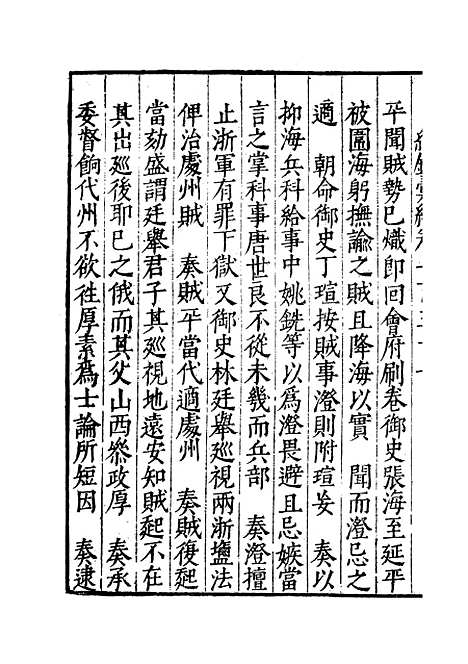 平聞賊勢已熾即回會府刷卷御史張海至延平
被圍海躬撫諭之賊且降海以實　聞而澄忌之
適　朝命御史丁瑄按賊事澄則附瑄妄　奏以
抑海兵科給事中姚銑等以爲澄畏避且忌嫉當
言之掌科事唐世良不從未幾而兵部　奏澄擅
止浙軍有罪下獄又御史林廷舉巡視兩浙鹽法
俾治處州賊　奏賊平當代適處州　奏賊復起
當劾盛謂廷舉君子其巡視地遠安知賊起不在
其出巡後耶已之俄而其父山西叅政厚　奏承
委督餉代州不欲徃厚素爲士論所短因　奏逮